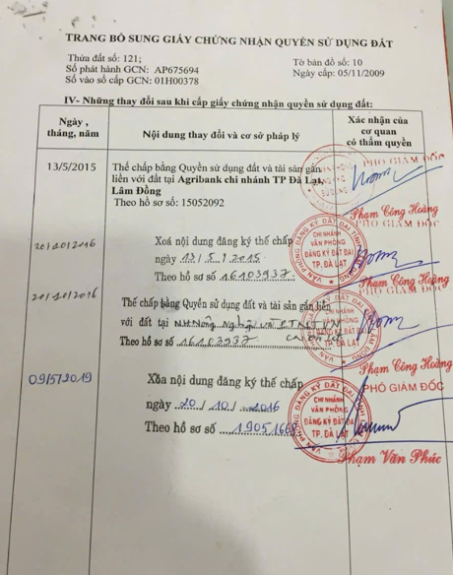 TRANG BỔ SUNG GIẤY CHỨNG NHẬN QUYỀN SỬ DỤNG ĐẤT
Thửa đất số: 121;
Tờ bản đồ số: 10
Số phát hành GCN: AP675694
Ngày cấp: 05/11/2009
Số vào sổ cấp GCN: 01H00378
IV- Những thay đổi sau khi cấp giấy chứng nhận quyền sử dụng đất:
Ngày, tháng, năm
Nội dung thay đổi và cơ sở pháp lý
Xác nhận của cơ quan có thẩm quyền
13/5/2015
Thế chấp bằng Quyền sử dụng đất và tài sản gắn
liền với đất tại Agribank chi nhánh TP Đà Lạt,
Lâm Đồng
Theo hồ sơ số: 15052092
PHÓ GIÁM ĐỐC
Phạm Công Hoàng
20/10/2016
Xoá nội dung đăng ký thế chấp
ngày 13/5/2015
Theo hồ sơ số 16103937
PHÓ GIÁM ĐỐC
CHI NHÁNH
VĂN PHÒNG
ĐĂNG KÝ ĐẤT ĐAI
TP. ĐÀ LẠT
Phạm Công Hoàng
20/10/2016
Thế chấp bằng Quyền sử dụng đất và tài sản gắn liền
với đất tại NH Nông Nghiệp và PTNT VN
Theo hồ sơ số 16103937
PHÓ GIÁM ĐỐC
Phạm Công Hoàng
09/5/2019
Xóa nội dung đăng ký thế chấp
ngày 20/10/2016
Theo hồ sơ số
PHÓ GIÁM ĐỐC
CHI NHÁNH
VĂN PHÒNG
ĐĂNG KÝ ĐẤT ĐAI
TP. ĐÀ LẠT
Phạm Văn Phúc